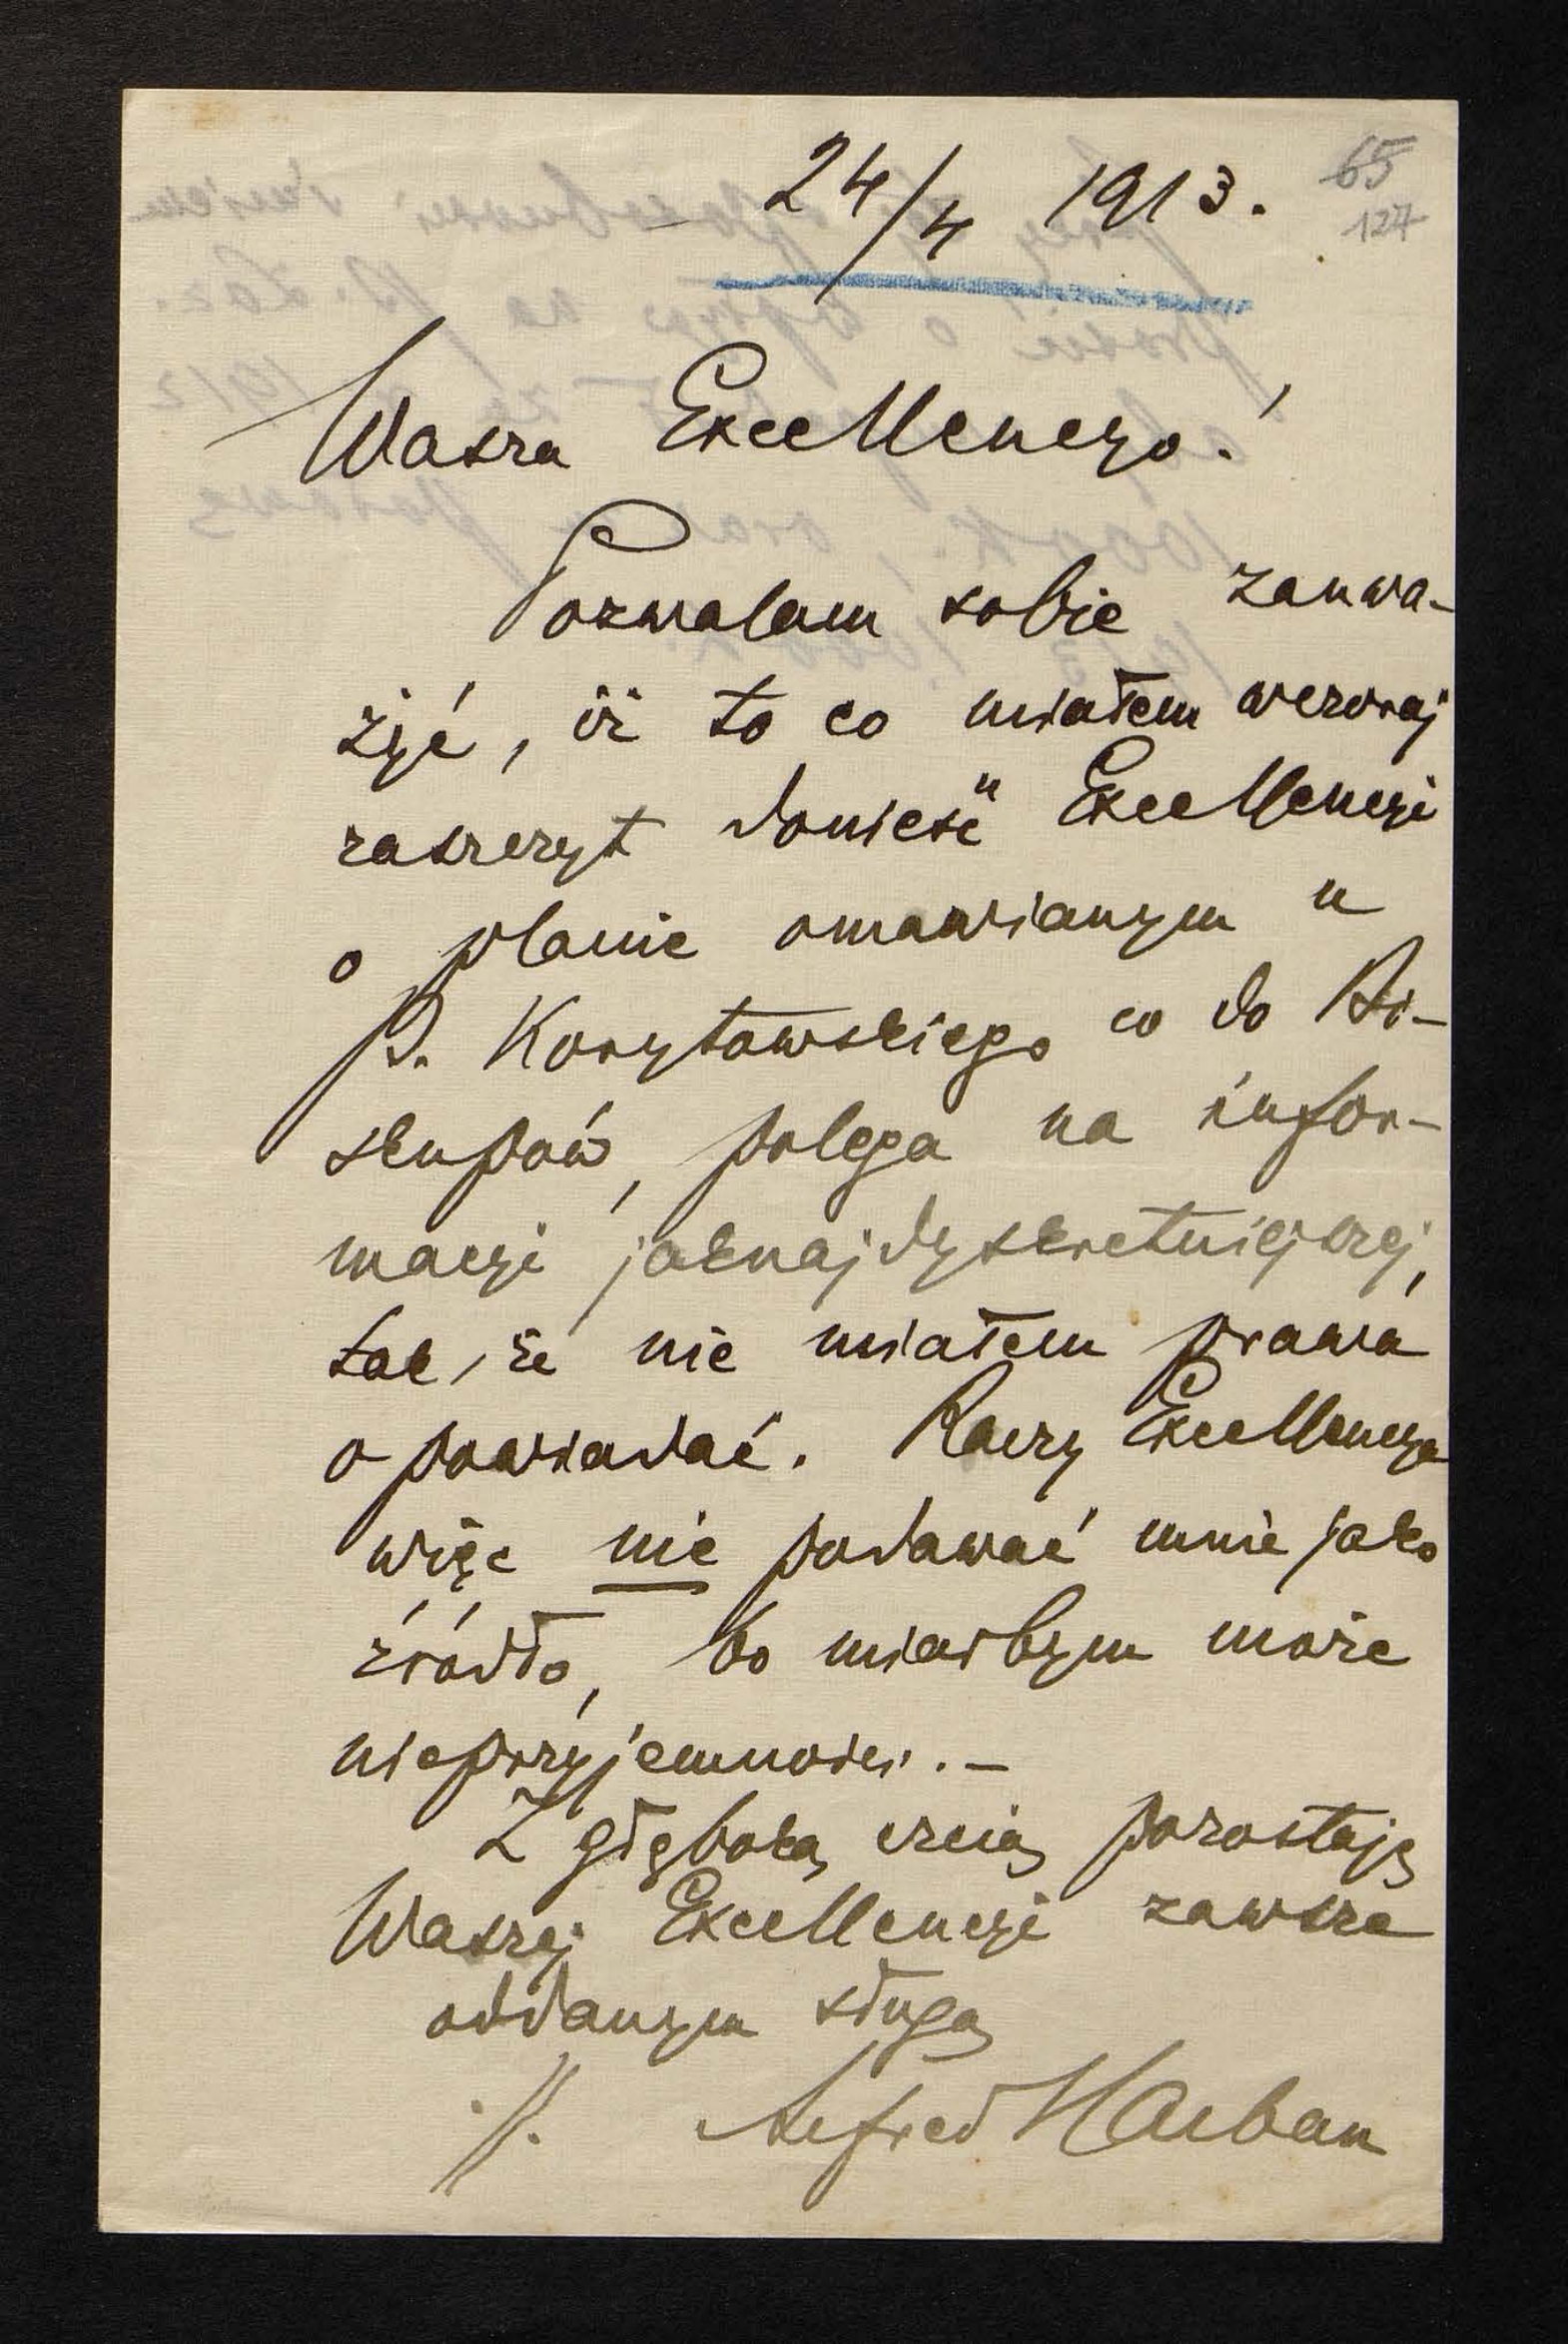 24/4 1913.
65
127
Wasza Excellencyo!
Pozwalam sobie zauwa-
żyć, iż to co miałem wczoraj
zaszczyt donieść Excellencyi
o planie omawianym u
P. Korytowskiego co do Bi-
skupów, polega na infor-
macyi jaknajdyskretniejszej,
tak, że nie miałem prawa
opowiadać. Raczy Excellencya
więc nie podawać mnie jako
źródło, bo miałbym może
nieprzyjemności. -
Z głęboką czcią pozostaję
Waszej Excellencyi zawsze
oddanym sługą
Alfred Halban